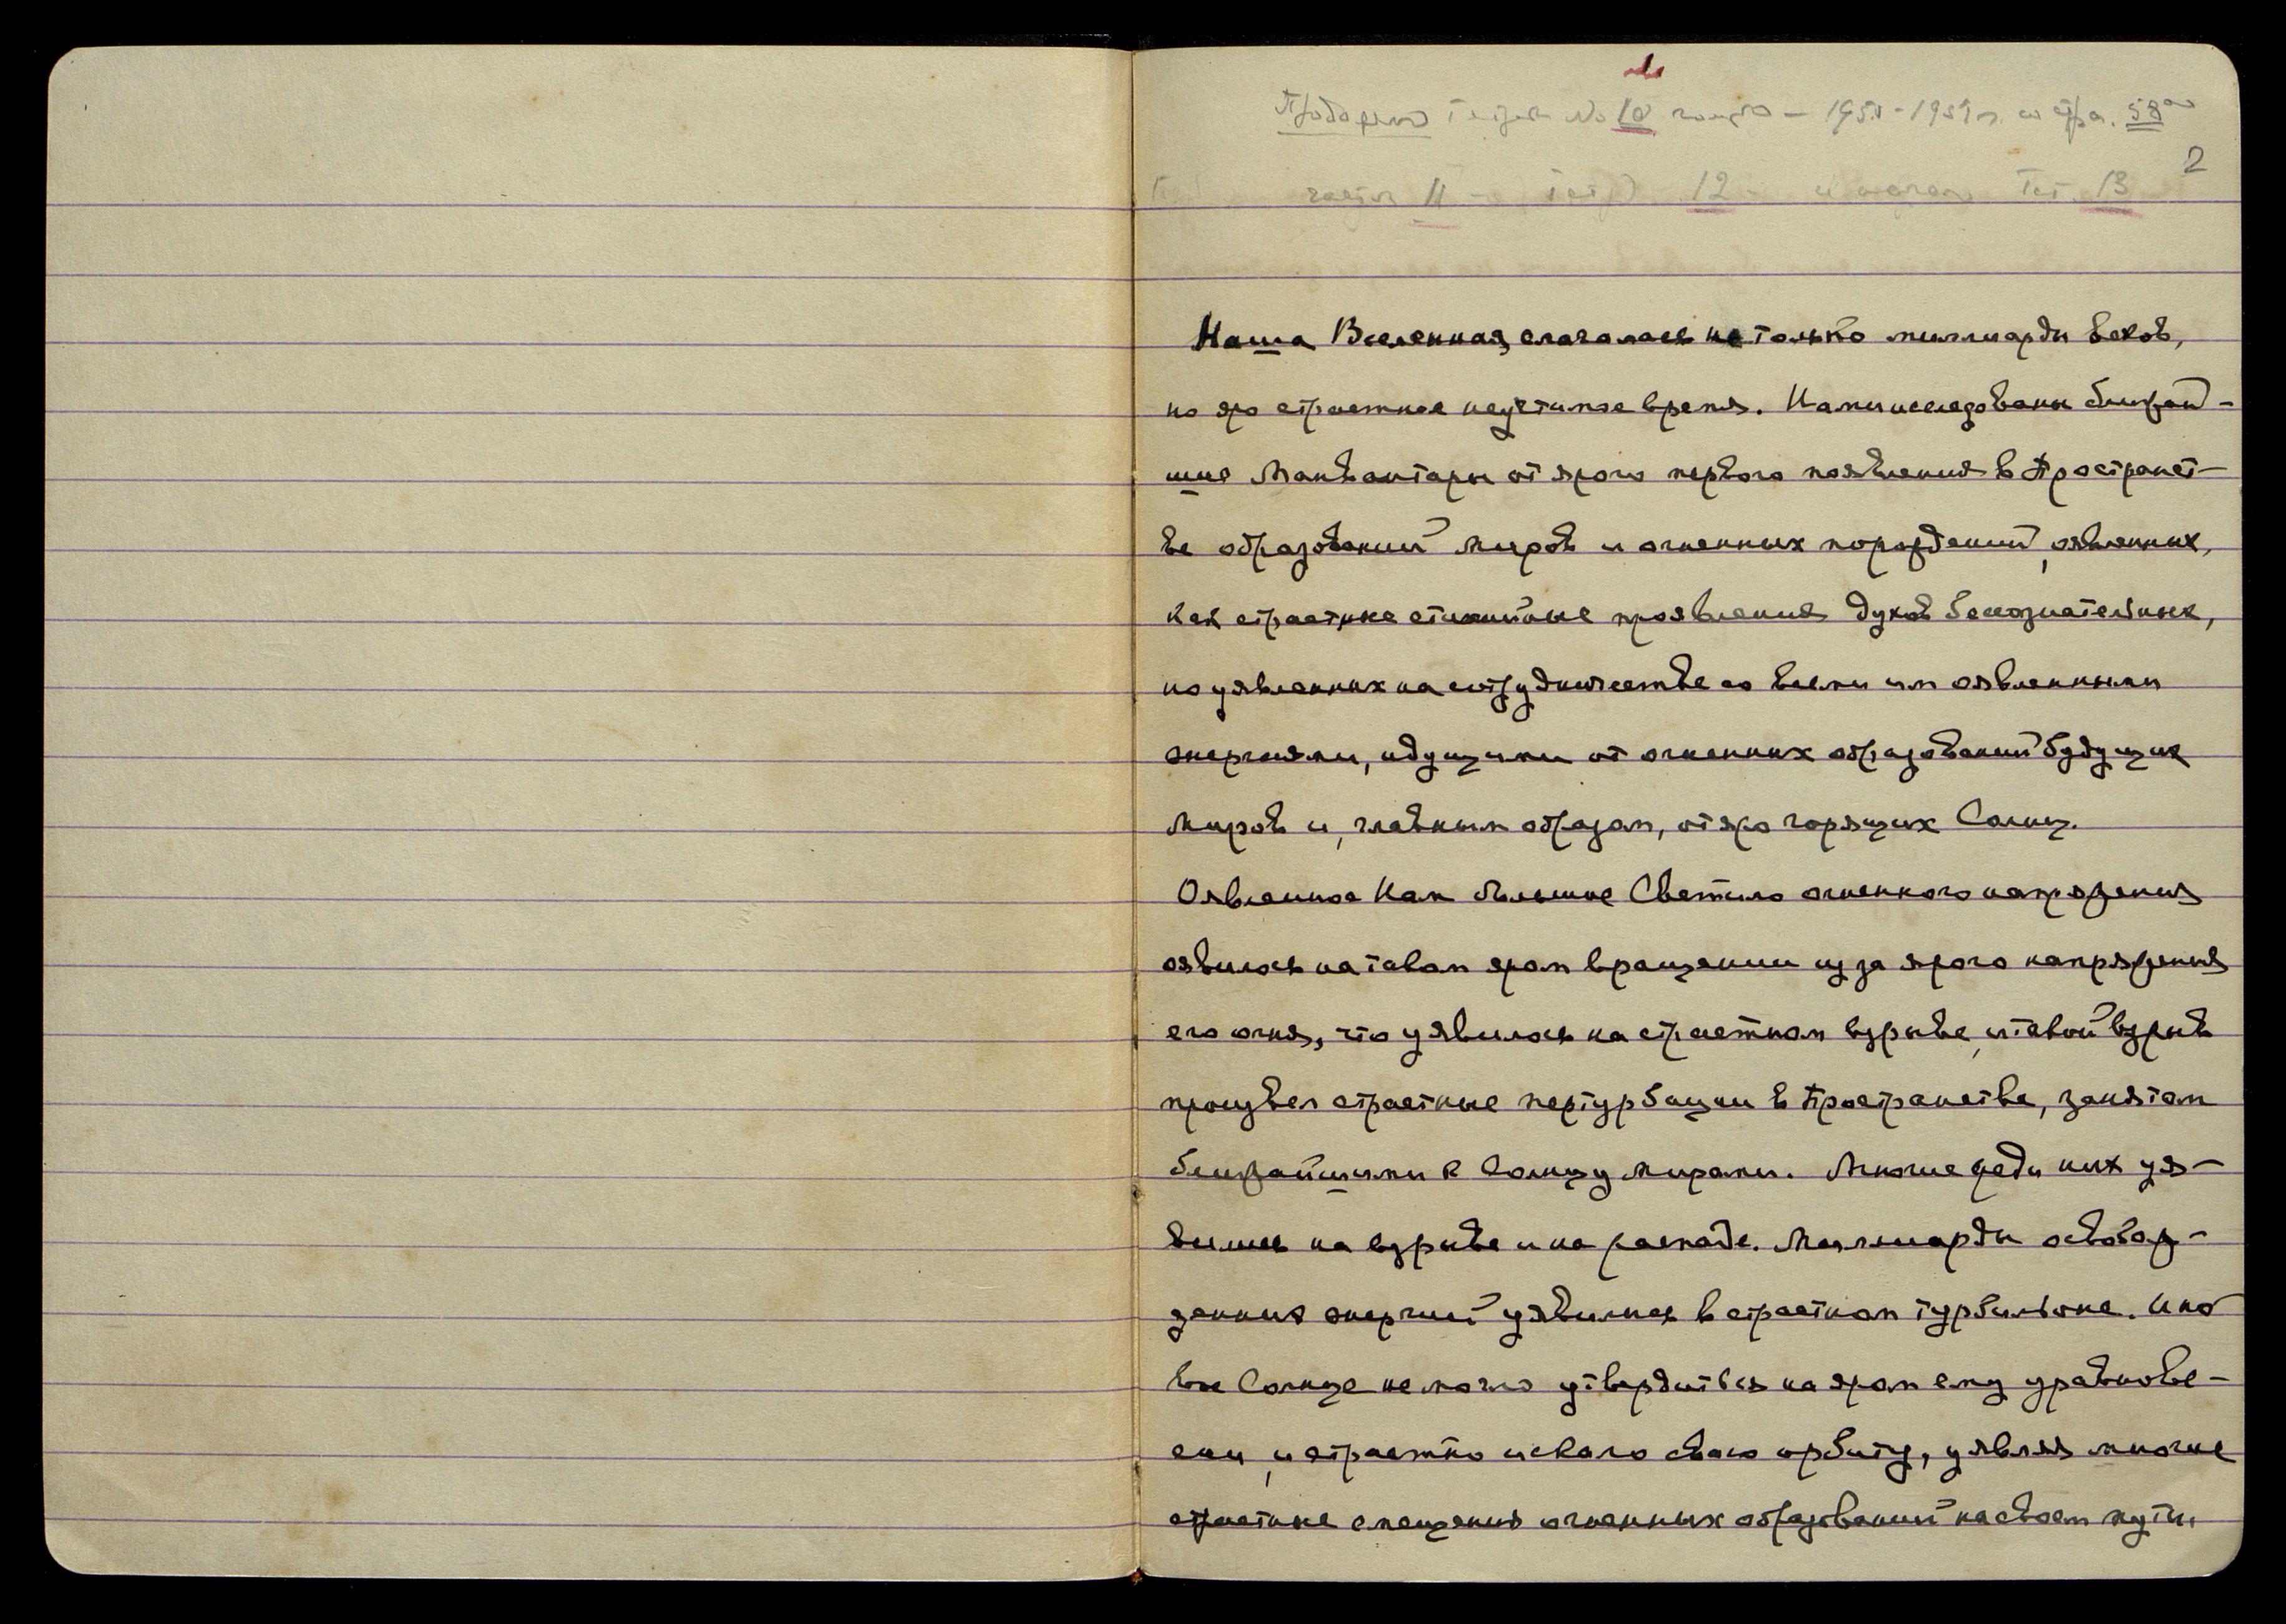 1
тетради № 10 – 1950-1951 г. со стр. 58
2
части 11 – тетр 12 – и начало тет. 13
Наша Вселенная слагалась не только миллиарды веков,
но яро страстное неучтимое время. Нами исследованы ближай-
шие Манвантары от ярого первого появления в Пространст-
ве образований миров и огненных порождений, оявленных,
как страстные стихийные проявления духов бессознательных,
но уявленных на сотрудничестве со всеми им оявленными
энергиями, идущими от огненных образований будущих
миров и, главным образом, от яро горящих Солнц.
Оявленное Нам бывшее Светило огненного напряжения
оявилось на таком яром вращении из за ярого напряжения
его огня, что уявилось на страстном взрыве, и такой взрыв
произвел страстные пертурбации в Пространстве, занятом
ближайшими к Солнцу мирами. Многие среди них уя-
вились на взрыве и на распаде. Миллиарды освобож-
денных энергий уявились в страстном турбильоне. И но
вое Солнце не могло утвердиться на яром ему равнове-
сии, и страстно искало свою орбиту, уявляя многие
страстные смещения огненных образований на своем пути.